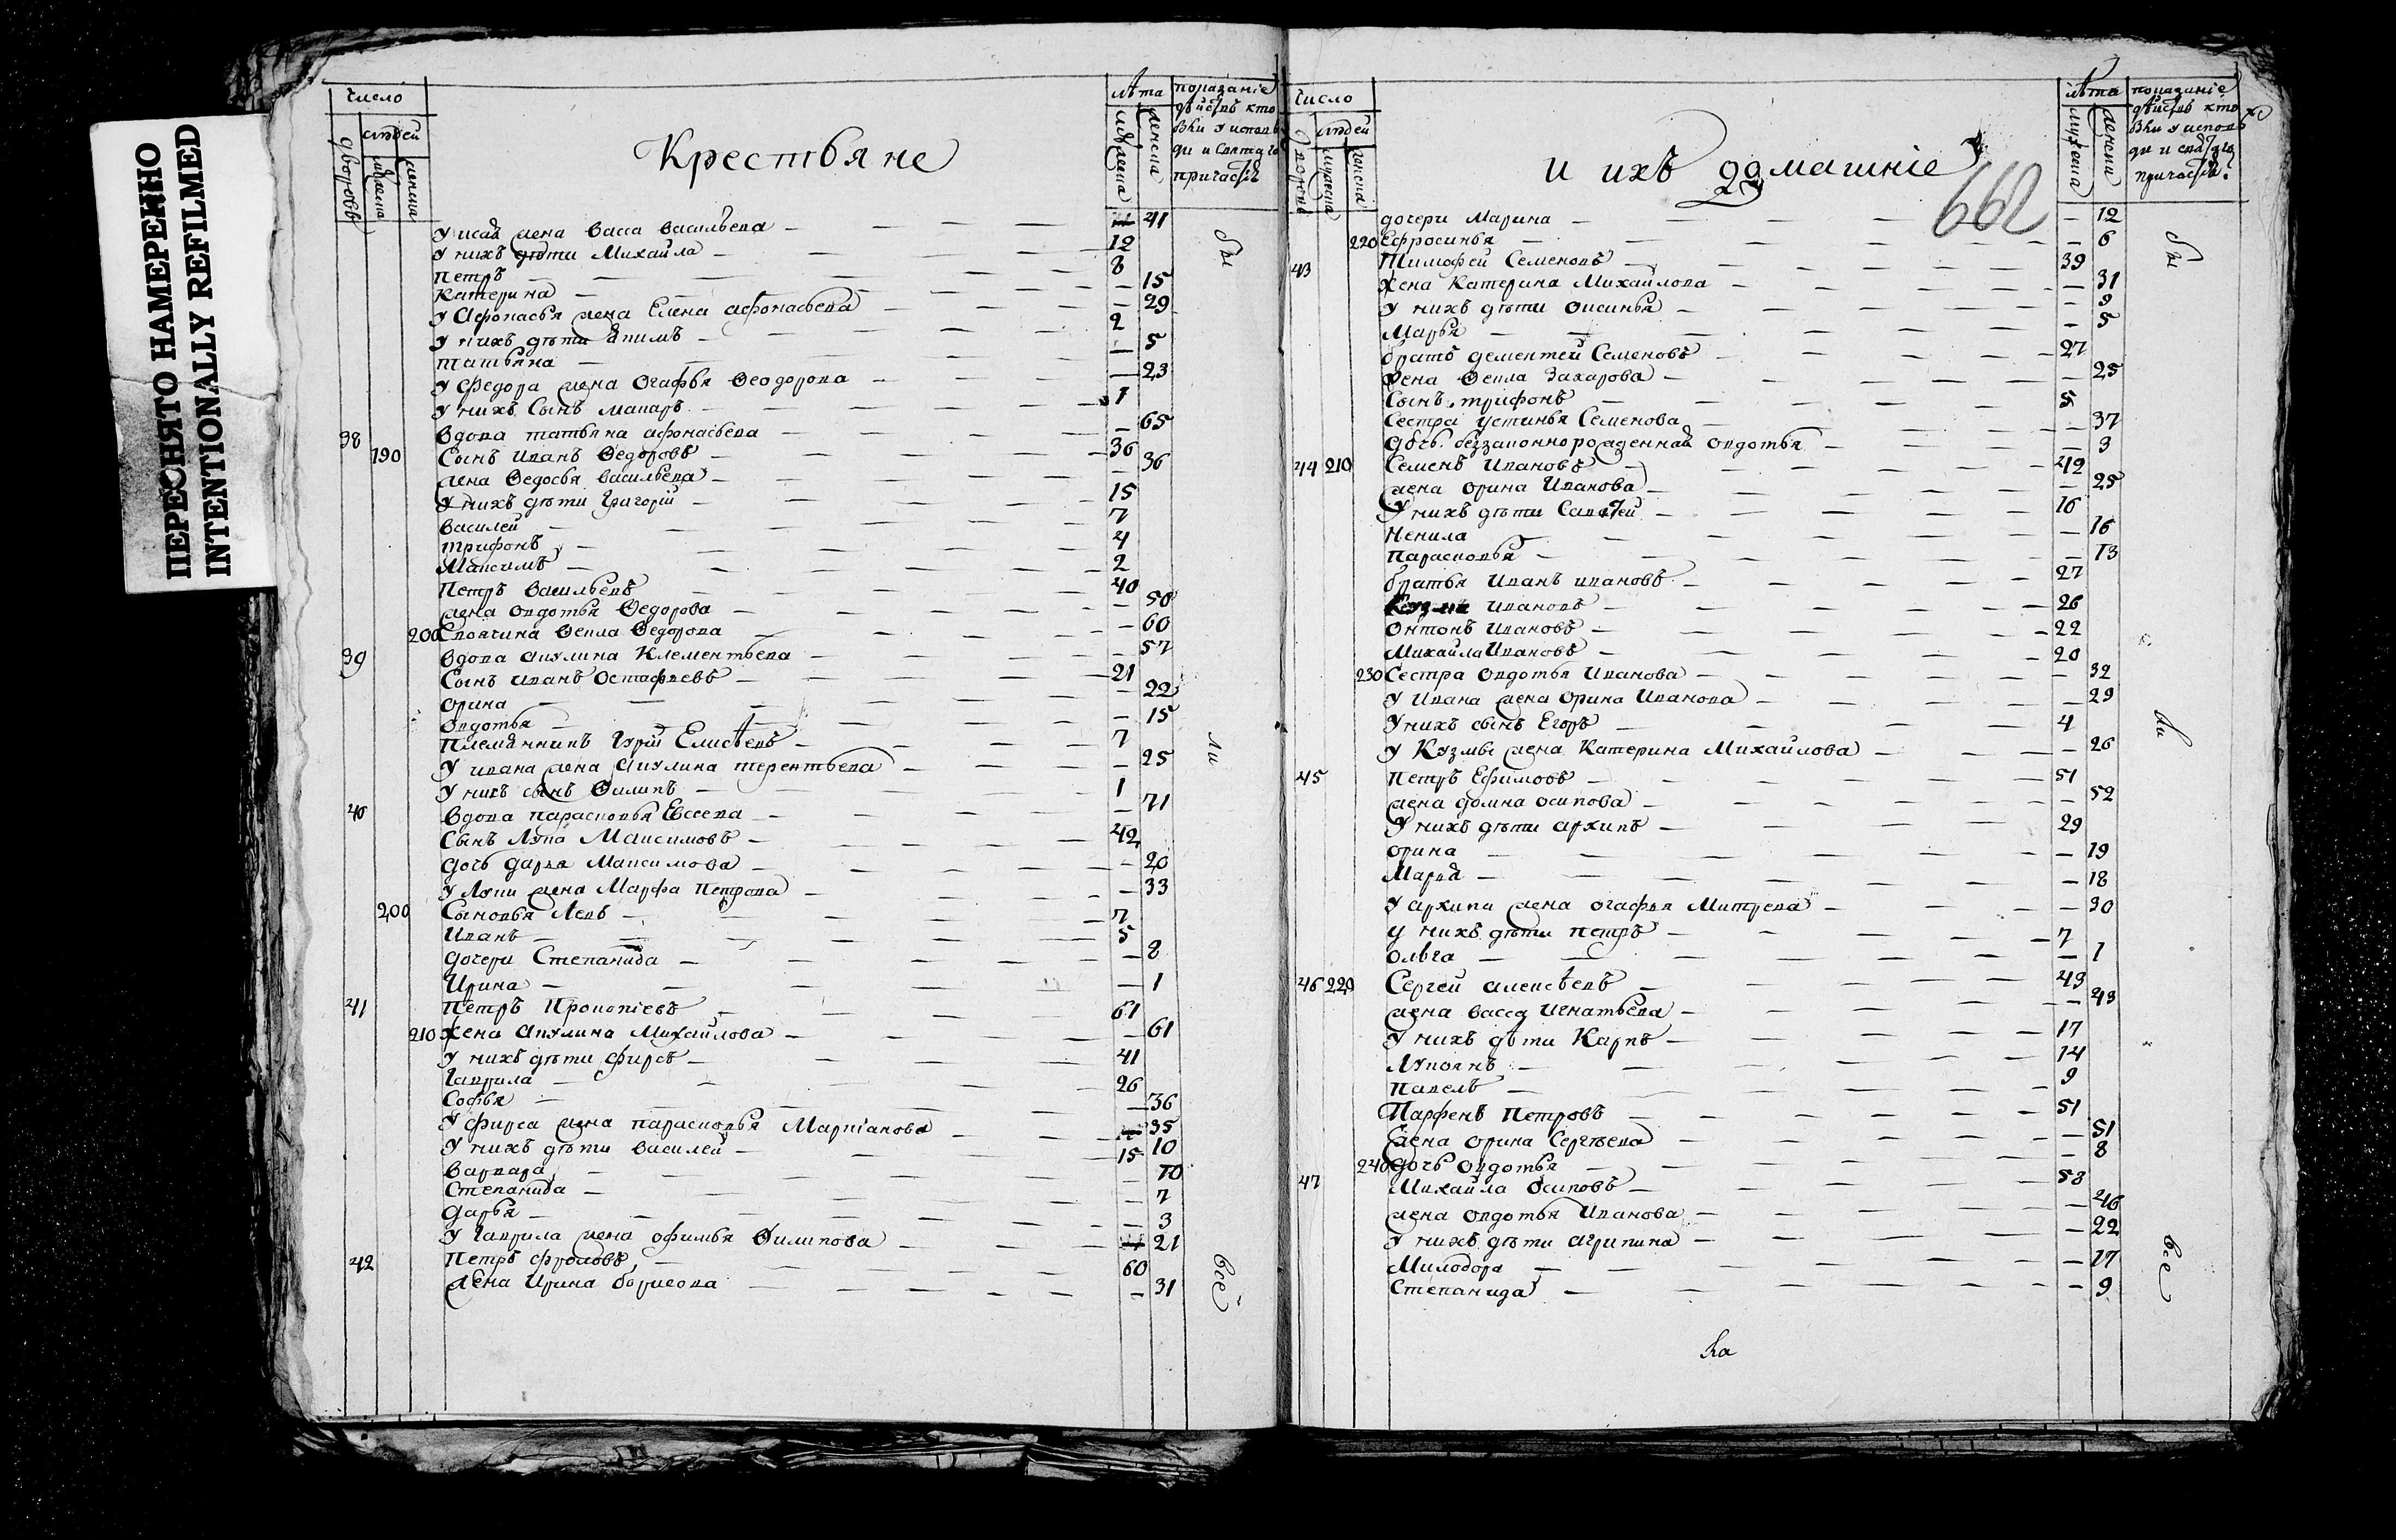 ПЕРЕСНЯТО НАМЕРЕННО
INTENTIONALLY REFILMED
число
людей
дворовъ
мужеска
женска
Крестьяне
лѣта
мужеска
женска
показаніе
дѣйствъ кто
былъ у исповѣ
ди и святаго
причастія
У исая жена Васса васильева — 41
У нихъ дѣти Михайла — 12
Петръ — 8
Катерина — 15
У Афонасья жена Елена афонасьева — 29
У нихъ дѣти Якимъ — 2
татьяна — 5
У Федора жена Огафья Ѳеодорова — 23
У нихъ Сынъ макаръ — 1
38 Вдова татьяна афонасьева — 65
190 Сынъ Иванъ Ѳедоровъ — 36
жена Ѳедосья васильева — 36
У нихъ дѣти Григорій — 15
Василей — 7
трифонъ — 4
Максимъ — 2
Петръ Васильевъ — 40
жена овдотья Ѳедорова — 50
200 Своячина Ѳекла Ѳедорова — 60
39 Вдова акулина Клементьева — 57
Сынъ иванъ Остафьевъ — 21
орина — 22
овдотья — 15
Племянникъ Гурій Елисѣевъ — 7
У ивана жена Акулина терентьева — 25
У нихъ сынъ Филипъ — 1
40 Вдова парасковья Евсеева — 71
Сынъ Лупа Максимовъ — 42
дочь дарья Максимова — 20
У Лупи жена Марфа Петрова — 33
200 Сыновья Левъ — 7
Иванъ — 5
дочери Степанида — 8
Ирина — 1
41 Петръ Прокопіевъ — 61
210 Жена Акулина Михайлова — 61
У нихъ дѣти фирсъ — 41
Гаврила — 26
Софья — 36
У фирса жена парасковья Маркіанова — 35
У нихъ дѣти Василей — 15 10
варвара — 10
Степанида — 7
дарья — 3
У Гаврила жена офимья Филипова — 21
42 Петръ фроловъ — 60
жена Ирина борисова — 31
бы
ли
всѣ
число
людей
дворовъ
мужеска
женска
и ихъ домашніе
662
лѣта
мужеска
женска
показаніе
дѣйствъ кто
былъ у исповѣ
ди и святаго
причастія
дочери Марина — 12
220 Ефросинья — 6
43 Тимофей Семеновъ — 39
Жена Катерина Михайлова — 31
У нихъ дѣти оксинья — 9
Марья — 5
братъ дементей Семеновъ — 27
Жена Ѳекла Захарова — 25
Сынъ трифонъ — 5
Сестра устинья Семенова — 37
дочь беззаконнорожденная овдотья — 3
44 210 Семенъ Ивановъ — 42
жена орина Иванова — 25
У нихъ дѣти Савелей — 16
Ненила — 16
парасковья — 13
братья Иванъ ивановъ — 27
Кузма Ивановъ — 26
Онтонъ Ивановъ — 22
Михайла Ивановъ — 20
230 Сестра овдотья Иванова — 32
У Ивана жена орина Иванова — 29
У нихъ сынъ Егоръ — 4
У Кузмы жена Катерина Михайлова — 26
45 Петръ Ефимовъ — 51
жена домна осипова — 52
У нихъ дѣти архипъ — 29
орина — 19
Марья — 18
У архипа жена огафья Митрева — 30
у нихъ дѣти петръ — 7
ольга — 1
46 220 Сергей алексѣевъ — 43
жена васса Игнатьева — 43
У нихъ дѣти Карпъ — 17
Лукоянъ — 14
Павелъ — 9
Парфенъ Петровъ — 51
жена орина Сергѣева — 51
240 дочь овдотья — 8
47 Михайла осиповъ — 58
жена овдотья Иванова — 46
У нихъ дѣти агрипина — 22
Милодора — 17
Степанида — 9
бы
ли
всѣ